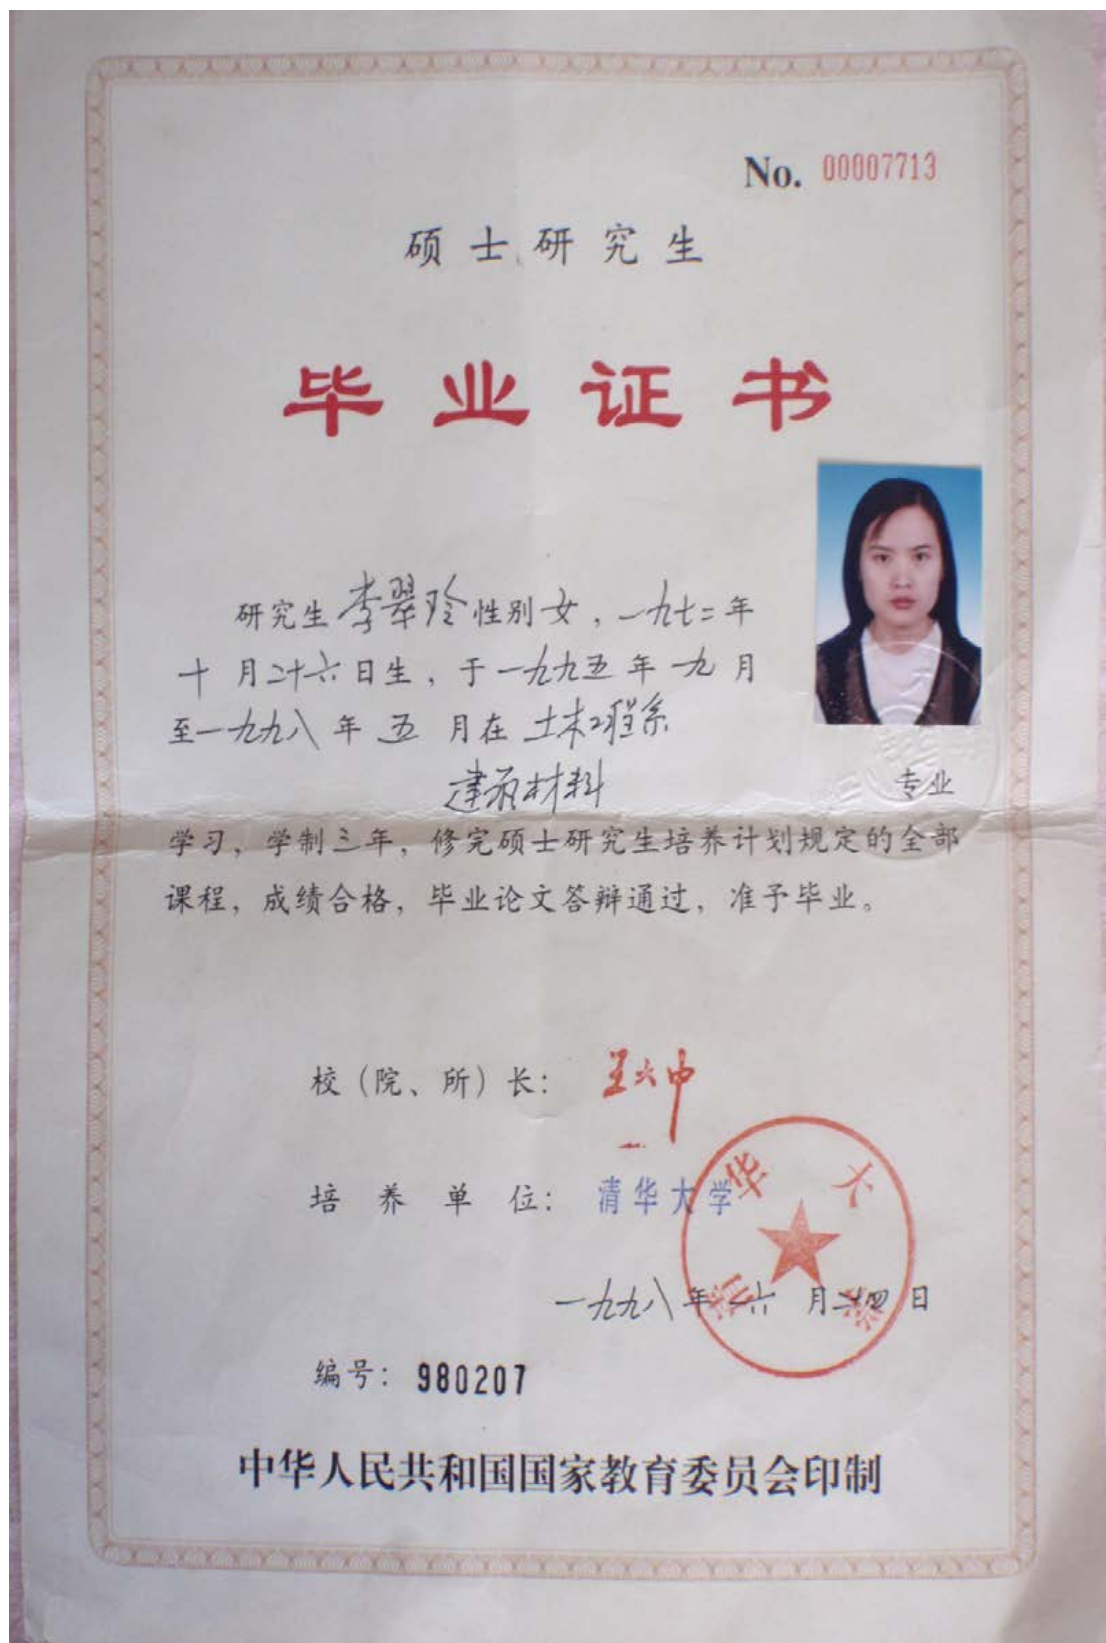 No. 00007713
硕士研究生
毕业证书
研究生李翠玲性别女，一九七二年
十月二十六日生，于一九九五年九月
至一九九八年五月在土木工程系
建筑材料 专业
学习，学制三年，修完硕士研究生培养计划规定的全部
课程，成绩合格，毕业论文答辩通过，准予毕业。
校（院、所）长：王大中
培养单位：清华大学
清华大学
一九九八年六月二十四日
编号：980207
中华人民共和国国家教育委员会印制